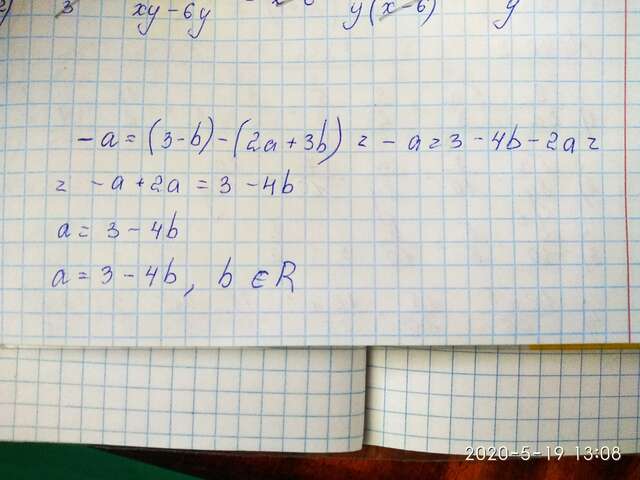 xy - 6y y(x-6) y
-a = (3-b) - (2a+3b) = -a = 3 - 4b - 2a =
= -a + 2a = 3 - 4b
a = 3 - 4b
a = 3 - 4b, b ∈ R
2020-5-19 13:08